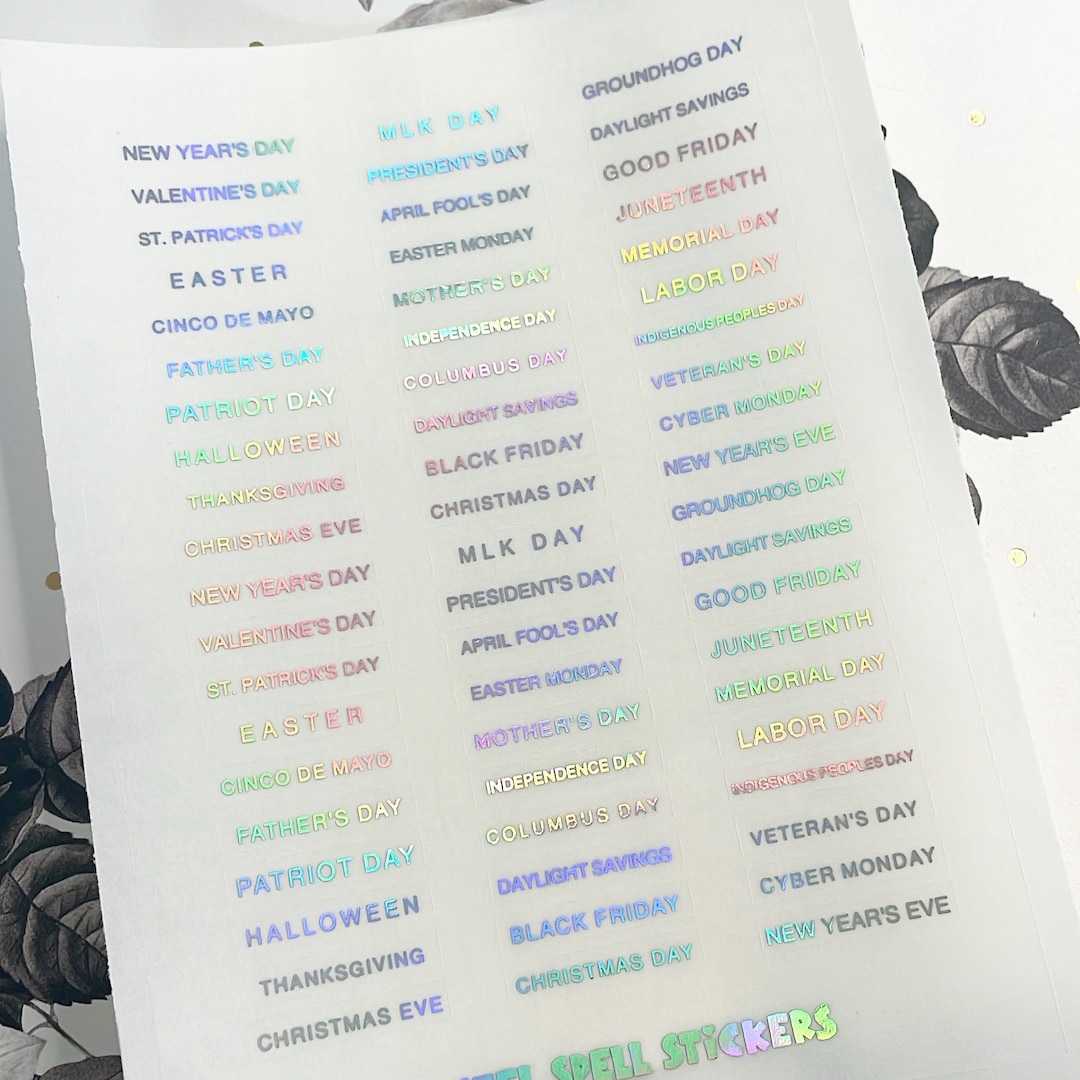 NEW YEAR'S DAY
VALENTINE'S DAY
ST. PATRICK'S DAY
EASTER
CINCO DE MAYO
FATHER'S DAY
PATRIOT DAY
HALLOWEEN
THANKSGIVING
CHRISTMAS EVE
NEW YEAR'S DAY
VALENTINE'S DAY
ST. PATRICK'S DAY
EASTER
CINCO DE MAYO
FATHER'S DAY
PATRIOT DAY
HALLOWEEN
THANKSGIVING
CHRISTMAS EVE
MLK DAY
PRESIDENT'S DAY
APRIL FOOL'S DAY
EASTER MONDAY
MOTHER'S DAY
INDEPENDENCE DAY
COLUMBUS DAY
DAYLIGHT SAVINGS
BLACK FRIDAY
CHRISTMAS DAY
MLK DAY
PRESIDENT'S DAY
APRIL FOOL'S DAY
EASTER MONDAY
MOTHER'S DAY
INDEPENDENCE DAY
COLUMBUS DAY
DAYLIGHT SAVINGS
BLACK FRIDAY
CHRISTMAS DAY
GROUNDHOG DAY
DAYLIGHT SAVINGS
GOOD FRIDAY
JUNETEENTH
MEMORIAL DAY
LABOR DAY
INDIGENOUS PEOPLES DAY
VETERAN'S DAY
CYBER MONDAY
NEW YEAR'S EVE
GROUNDHOG DAY
DAYLIGHT SAVINGS
GOOD FRIDAY
JUNETEENTH
MEMORIAL DAY
LABOR DAY
INDIGENOUS PEOPLES DAY
VETERAN'S DAY
CYBER MONDAY
NEW YEAR'S EVE
SPELL STICKERS